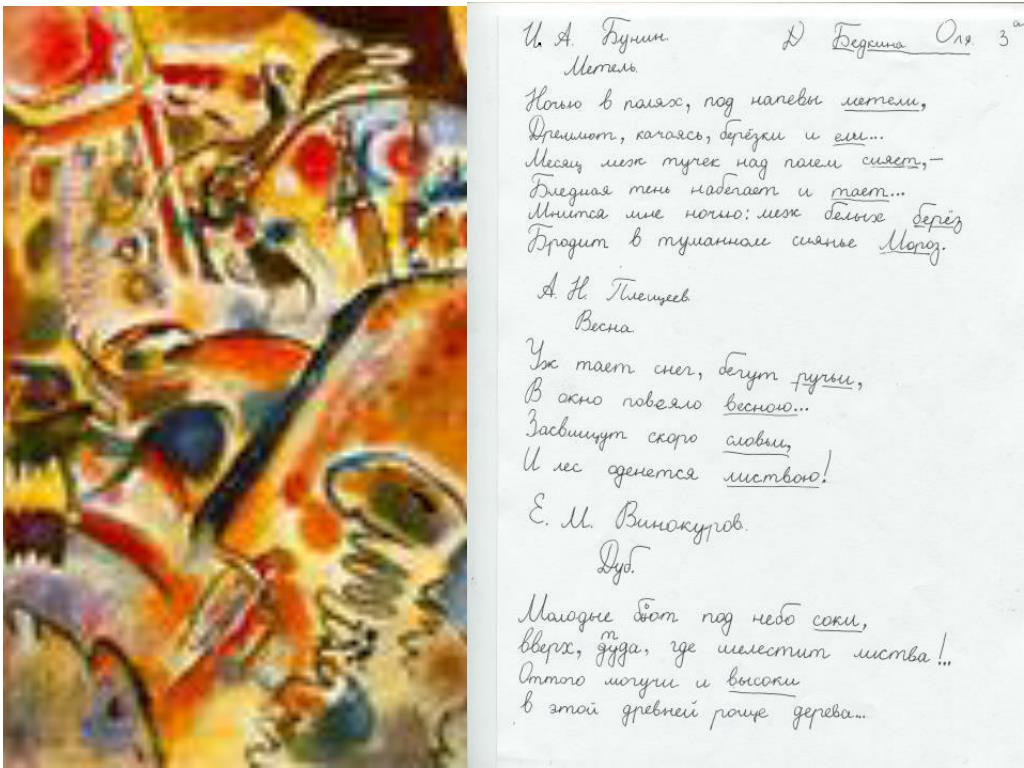 И. А. Бунин. Д Бедкина Оля. 3 а
Метель.
Ночью в полях, под напевы метели,
Дремлют, качаясь, берёзки и ели...
Месяц меж тучек над полем сияет,—
Бледная тень набегает и тает...
Мнится мне ночью: меж белых берёз
Бродит в туманном сиянье Мороз.
А. Н. Плещеев.
Весна.
Уж тает снег, бегут ручьи,
В окно повеяло весною...
Засвищут скоро словьи,
И лес оденется листвою!
Е. М. Винокуров.
Дуб.
Молодые бьют под небо соки,
вверх, туда, где шелестит листва!..
Оттого могучи и высоки
в этой древней роще дерева...